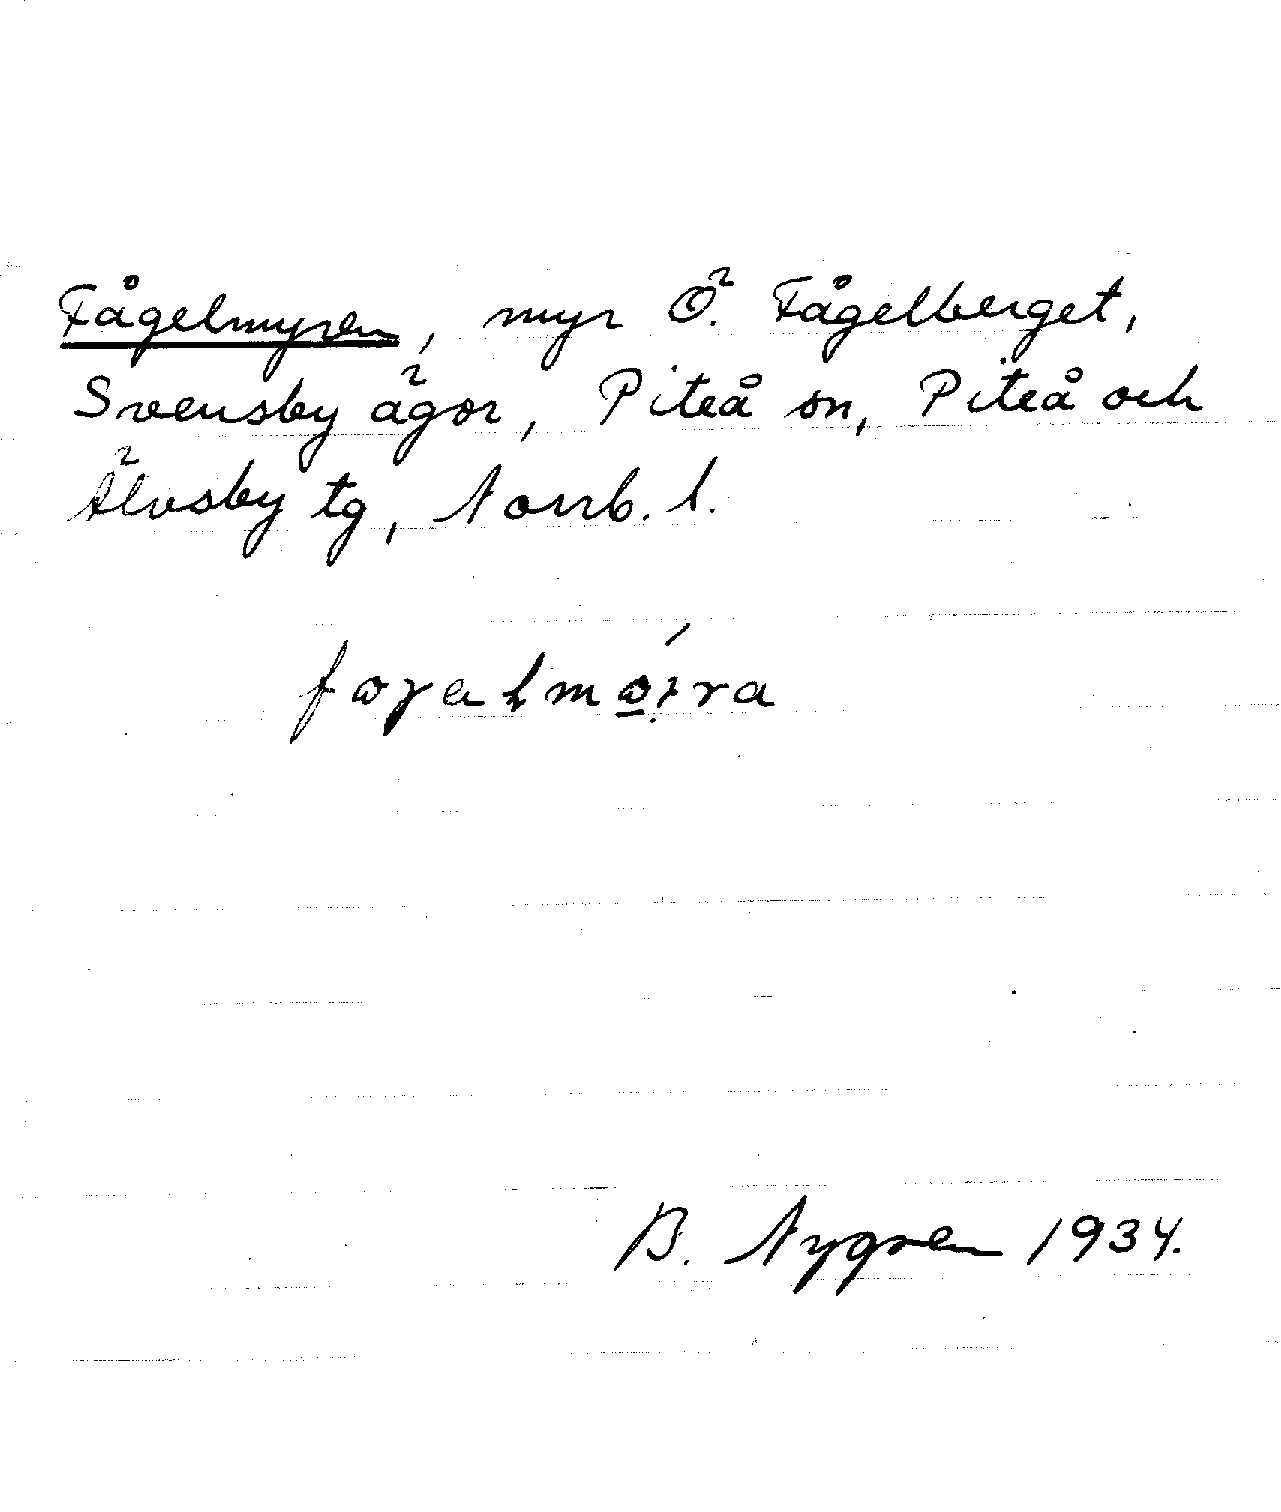 Fågelmyren, myr Ö. Fågelberget,
Svensby ägor, Piteå sn, Piteå och
Älvsby tg, Norrb. l.
B. Nygren 1934.